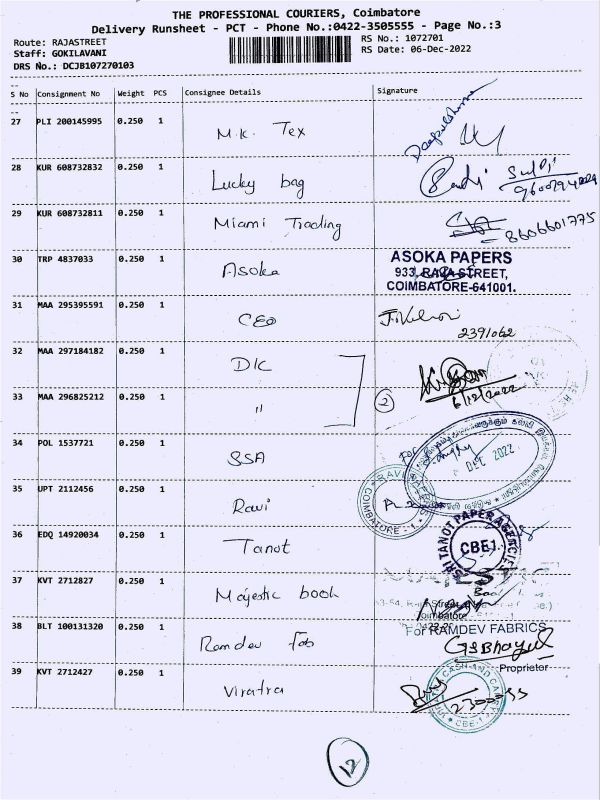 THE PROFESSIONAL COURIERS, Coimbatore
Delivery Runsheet - PCT - Phone No.:0422-3505555 - Page No.:3
Route: RAJASTREET
Staff: GOKILAVANI
DRS No.: DCJB107270103
RS No.: 1072701
RS Date: 06-Dec-2022
S No Consignment No Weight PCS Consignee Details Signature
27 PLI 200145995 0.250 1 M.K. Tex
28 KUR 608732832 0.250 1 Lucky bag
29 KUR 608732811 0.250 1 Miami Trading 8606601775
30 TRP 4837033 0.250 1 Asoka
ASOKA PAPERS
933, RAJA STREET,
COIMBATORE-641001.
31 MAA 295395591 0.250 1 CEO
2391062
32 MAA 297184182 0.250 1 DK
6/12/2022
33 MAA 296825212 0.250 1 " 2
34 POL 1537721 0.250 1 SSA
DEC 2022
35 UPT 2112456 0.250 1 Ravi
COIMBATORE - 1
36 EDQ 14920034 0.250 1 Tanot
SRI TANOT PAPER AGENCIES
CBE1
37 KVT 2712827 0.250 1 Majestic book
38 BLT 100131320 0.250 1 Ramdev fab
For RAMDEV FABRICS
Proprietor
39 KVT 2712427 0.250 1 Viratra
CASH AND CARRY
CBE-1
12